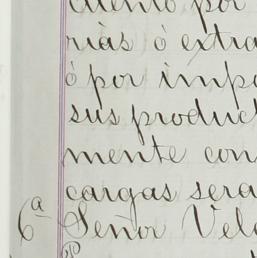 ciento por
rias ó extra
ó por impo
sus product
mente con
cargas sera
6ª Señor Vela